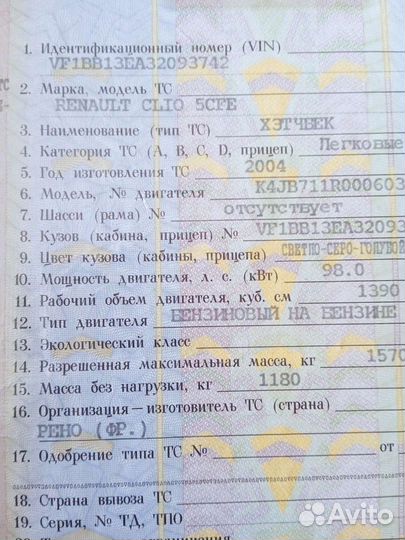 1. Идентификационный номер (VIN)
VF1BB13EA32093742
2. Марка, модель ТС
RENAULT CLIO 5CFE
3. Наименование (тип ТС) ХЭТЧБЕК
4. Категория ТС (A, B, C, D, прицеп) Легковые
5. Год изготовления ТС 2004
6. Модель, № двигателя K4JB711R000603
7. Шасси (рама) № отсутствует
8. Кузов (кабина, прицеп) № VF1BB13EA32093
9. Цвет кузова (кабины, прицепа) СВЕТЛО-СЕРО-ГОЛУБОЙ
10. Мощность двигателя, л. с. (кВт) 98.0
11. Рабочий объем двигателя, куб. см 1390
12. Тип двигателя БЕНЗИНОВЫЙ НА БЕНЗИНЕ
13. Экологический класс
14. Разрешенная максимальная масса, кг 1570
15. Масса без нагрузки, кг 1180
16. Организация—изготовитель ТС (страна)
РЕНО (ФР.)
17. Одобрение типа ТС № от
18. Страна вывоза ТС
19. Серия, № ТД, ТПО
Avito